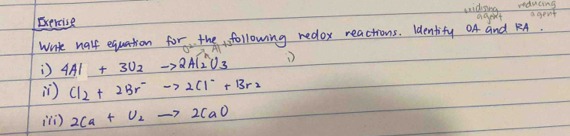 Exercise
oxidising agent reducing agent
Write half equation for the following redox reactions. Identify OA and RA.
i) 4Al + 3O2 -> 2Al2O3
i)
ii) Cl2 + 2Br⁻ -> 2Cl⁻ + Br2
iii) 2Ca + O2 -> 2CaO